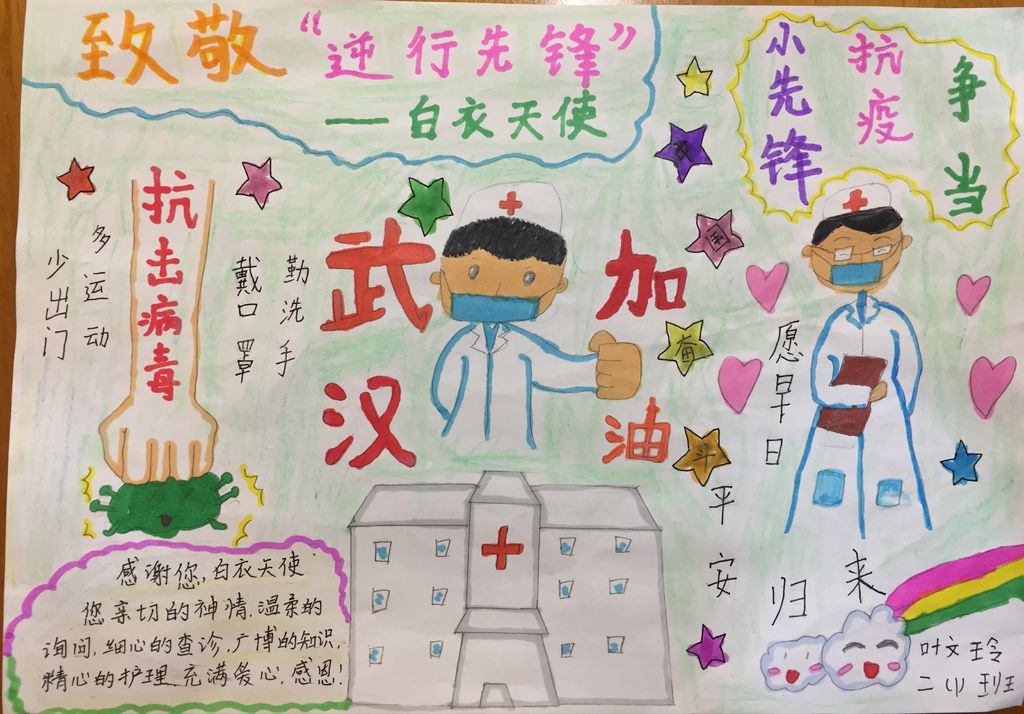 致敬“逆行先锋”
—白衣天使
争当
抗疫
小先锋
抗击病毒
多运动
少出门
勤洗手
戴口罩
武汉
加油
奋
斗
愿早日
平安
归来
感谢您,白衣天使
您亲切的神情,温柔的
询问,细心的查诊,广博的知识,
精心的护理,充满爱心,感恩!
叶文玲
二(1)班